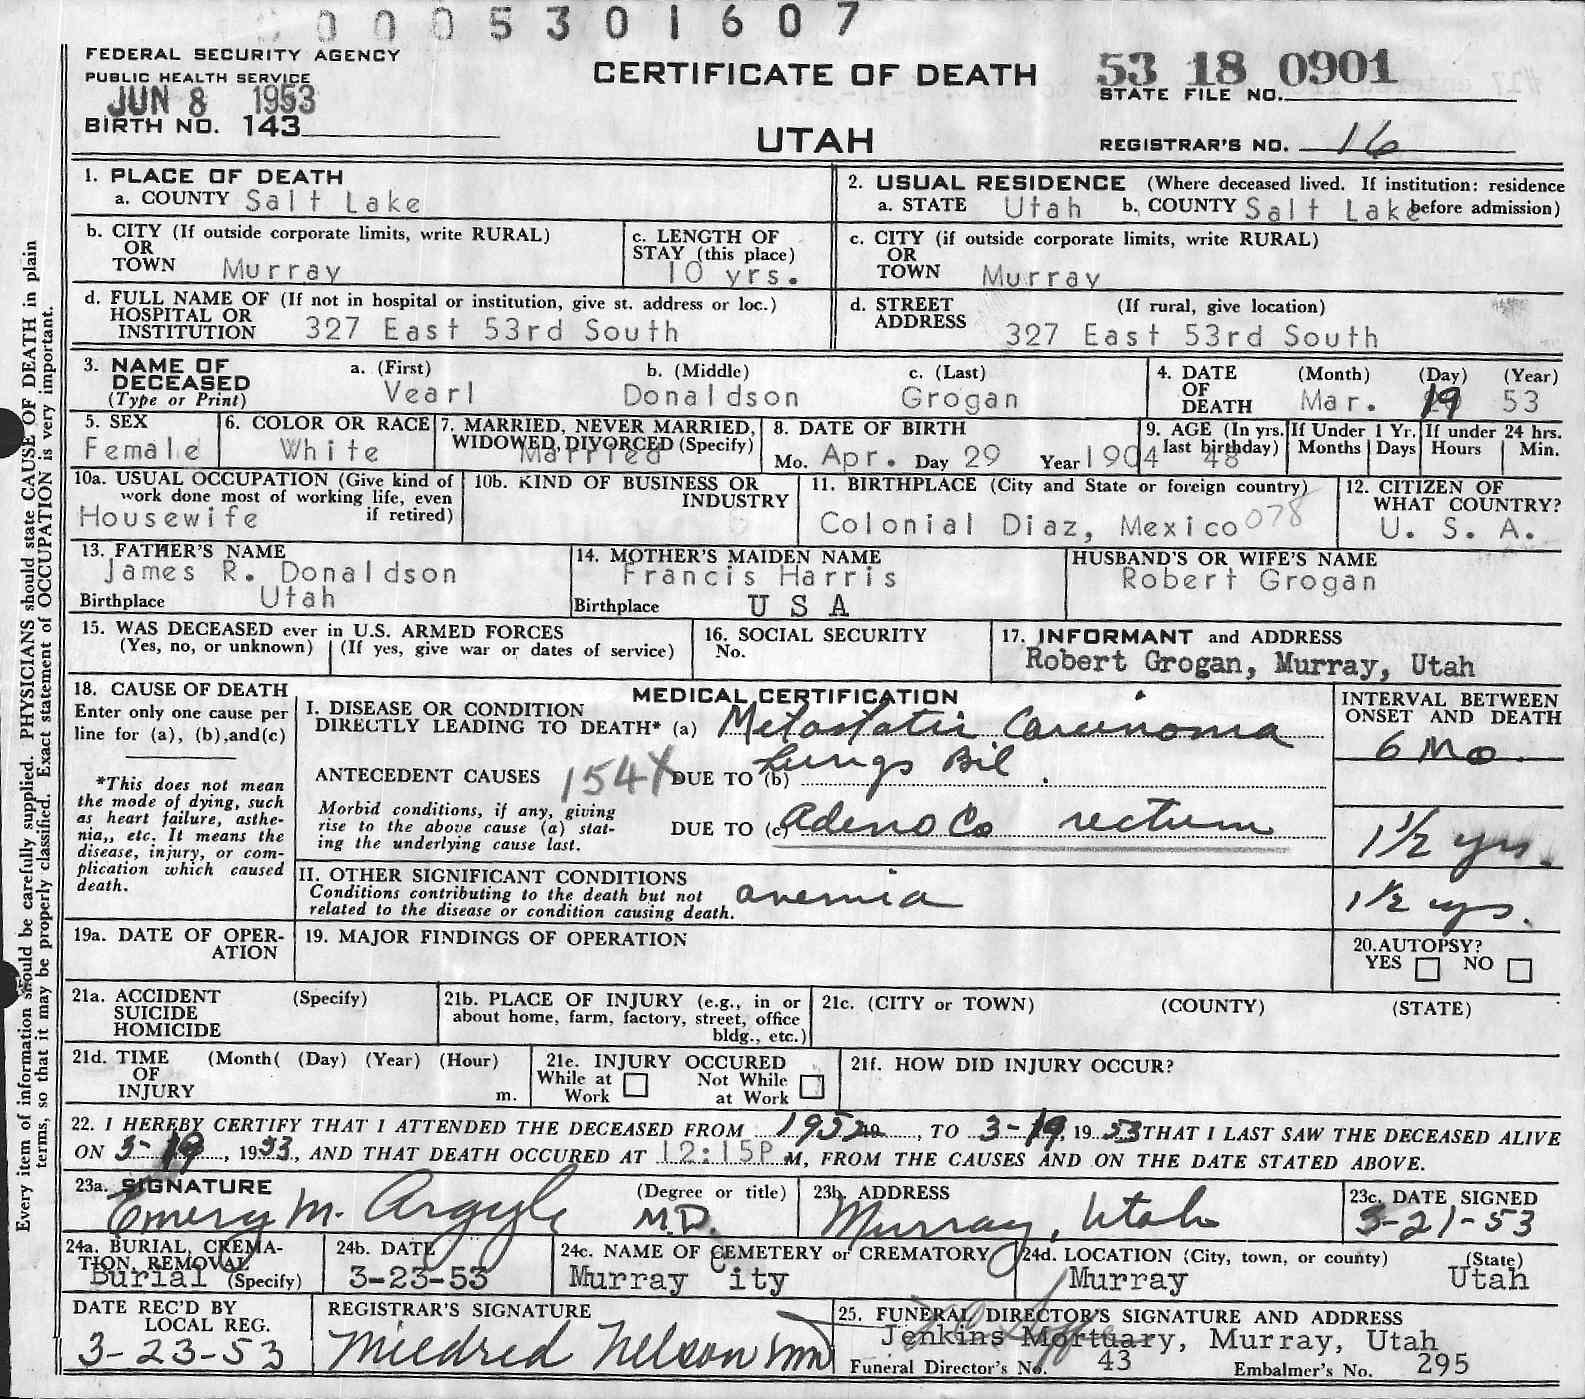 0005301607
FEDERAL SECURITY AGENCY
PUBLIC HEALTH SERVICE
JUN 8 1953
BIRTH NO. 143
CERTIFICATE OF DEATH
UTAH
53 18 0901
STATE FILE NO.
REGISTRAR'S NO. 16
1. PLACE OF DEATH
a. COUNTY Salt Lake
2. USUAL RESIDENCE (Where deceased lived. If institution: residence before admission)
a. STATE Utah b. COUNTY Salt Lake
b. CITY (If outside corporate limits, write RURAL)
OR
TOWN Murray
c. LENGTH OF
STAY (this place)
10 yrs.
c. CITY (if outside corporate limits, write RURAL)
OR
TOWN Murray
d. FULL NAME OF (If not in hospital or institution, give st. address or loc.)
HOSPITAL OR
INSTITUTION 327 East 53rd South
d. STREET (If rural, give location)
ADDRESS 327 East 53rd South
3. NAME OF
DECEASED
(Type or Print)
a. (First) b. (Middle) c. (Last)
Vearl Donaldson Grogan
4. DATE (Month) (Day) (Year)
OF
DEATH Mar. 19 53
5. SEX
Female
6. COLOR OR RACE
White
7. MARRIED, NEVER MARRIED,
WIDOWED, DIVORCED (Specify)
Married
8. DATE OF BIRTH
Mo. Apr. Day 29 Year 1904
9. AGE (In yrs. last birthday) 48
If Under 1 Yr. Months Days
If under 24 hrs. Hours Min.
10a. USUAL OCCUPATION (Give kind of
work done most of working life, even
if retired)
Housewife
10b. KIND OF BUSINESS OR
INDUSTRY
11. BIRTHPLACE (City and State or foreign country)
Colonial Diaz, Mexico 078
12. CITIZEN OF
WHAT COUNTRY?
U. S. A.
13. FATHER'S NAME
James R. Donaldson
Birthplace Utah
14. MOTHER'S MAIDEN NAME
Francis Harris
Birthplace U S A
HUSBAND'S OR WIFE'S NAME
Robert Grogan
15. WAS DECEASED ever in U.S. ARMED FORCES
(Yes, no, or unknown) (If yes, give war or dates of service)
16. SOCIAL SECURITY
No.
17. INFORMANT and ADDRESS
Robert Grogan, Murray, Utah
18. CAUSE OF DEATH
Enter only one cause per
line for (a), (b),and(c)
*This does not mean
the mode of dying, such
as heart failure, asthe-
nia,, etc. It means the
disease, injury, or com-
plication which caused
death.
MEDICAL CERTIFICATION
I. DISEASE OR CONDITION
DIRECTLY LEADING TO DEATH* (a) Metastatic Carcinoma
ANTECEDENT CAUSES 154X DUE TO (b) Lungs Bil.
Morbid conditions, if any, giving
rise to the above cause (a) stat-
ing the underlying cause last.
DUE TO (c) Adeno Ca rectum
INTERVAL BETWEEN
ONSET AND DEATH
6 Mo.
1 1/2 yrs.
II. OTHER SIGNIFICANT CONDITIONS
Conditions contributing to the death but not
related to the disease or condition causing death.
anemia
1 1/2 yrs.
19a. DATE OF OPER-
ATION
19. MAJOR FINDINGS OF OPERATION
20.AUTOPSY?
YES NO
21a. ACCIDENT (Specify)
SUICIDE
HOMICIDE
21b. PLACE OF INJURY (e.g., in or
about home, farm, factory, street, office
bldg., etc.)
21c. (CITY or TOWN) (COUNTY) (STATE)
21d. TIME (Month( (Day) (Year) (Hour)
OF
INJURY m.
21e. INJURY OCCURED
While at Work Not While at Work
21f. HOW DID INJURY OCCUR?
22. I HEREBY CERTIFY THAT I ATTENDED THE DECEASED FROM 1952 19, TO 3-19, 19 53 THAT I LAST SAW THE DECEASED ALIVE
ON 3-19, 1953, AND THAT DEATH OCCURED AT 12:15P M, FROM THE CAUSES AND ON THE DATE STATED ABOVE.
23a. SIGNATURE (Degree or title)
Emery M. Argyle M.D.
23b. ADDRESS
Murray, Utah
23c. DATE SIGNED
3-21-53
24a. BURIAL, CREMA-
TION, REMOVAL
Burial (Specify)
24b. DATE
3-23-53
24c. NAME OF CEMETERY or CREMATORY
Murray City
24d. LOCATION (City, town, or county) (State)
Murray Utah
DATE REC'D BY
LOCAL REG.
3-23-53
REGISTRAR'S SIGNATURE
Mildred Nelson
25. FUNERAL DIRECTOR'S SIGNATURE AND ADDRESS
Jenkins Mortuary, Murray, Utah
Funeral Director's No. 43 Embalmer's No. 295
Every item of information should be carefully supplied. PHYSICIANS should state CAUSE OF DEATH in plain
terms, so that it may be properly classified. Exact statement of OCCUPATION is very important.